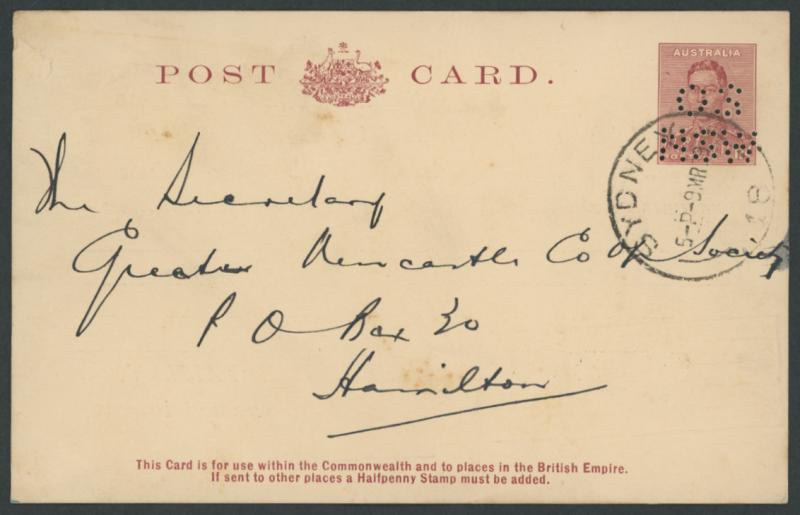 POST CARD.
AUSTRALIA
OS
NSW
SYDNEY
5-P-9MR
18
The Secretary
Greater Newcastle Co Op Society
P O Box 30
Hamilton
This Card is for use within the Commonwealth and to places in the British Empire.
If sent to other places a Halfpenny Stamp must be added.